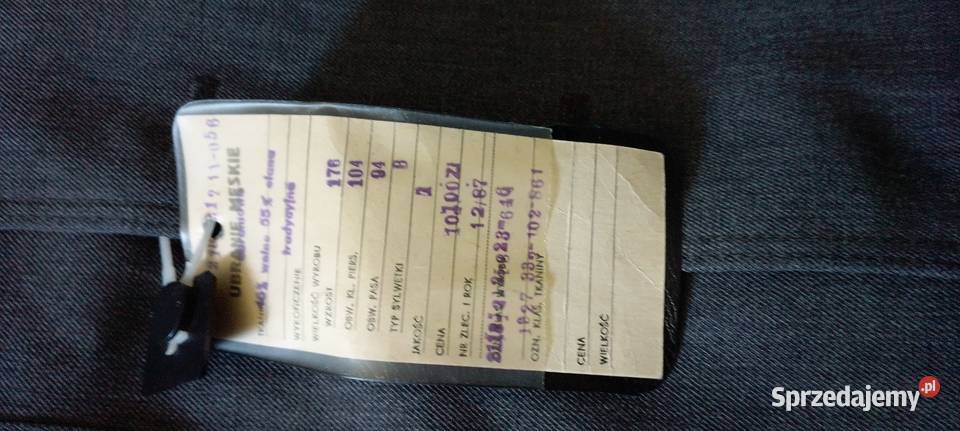 11-056
UBRANIE MĘSKIE
TKANINA wełna 55% elana
WYKOŃCZENIE tradycyjne
WIELKOŚĆ WYROBU
WZROST 176
OBW. KL. PIERS. 104
OBW. PASA 94
TYP SYLWETKI B
JAKOŚĆ 1
CENA 10100ZŁ
NR ZLEC. I ROK 12/87
OZN. KLAS. TKANINY
CENA
WIELKOŚĆ
Sprzedajemy.pl